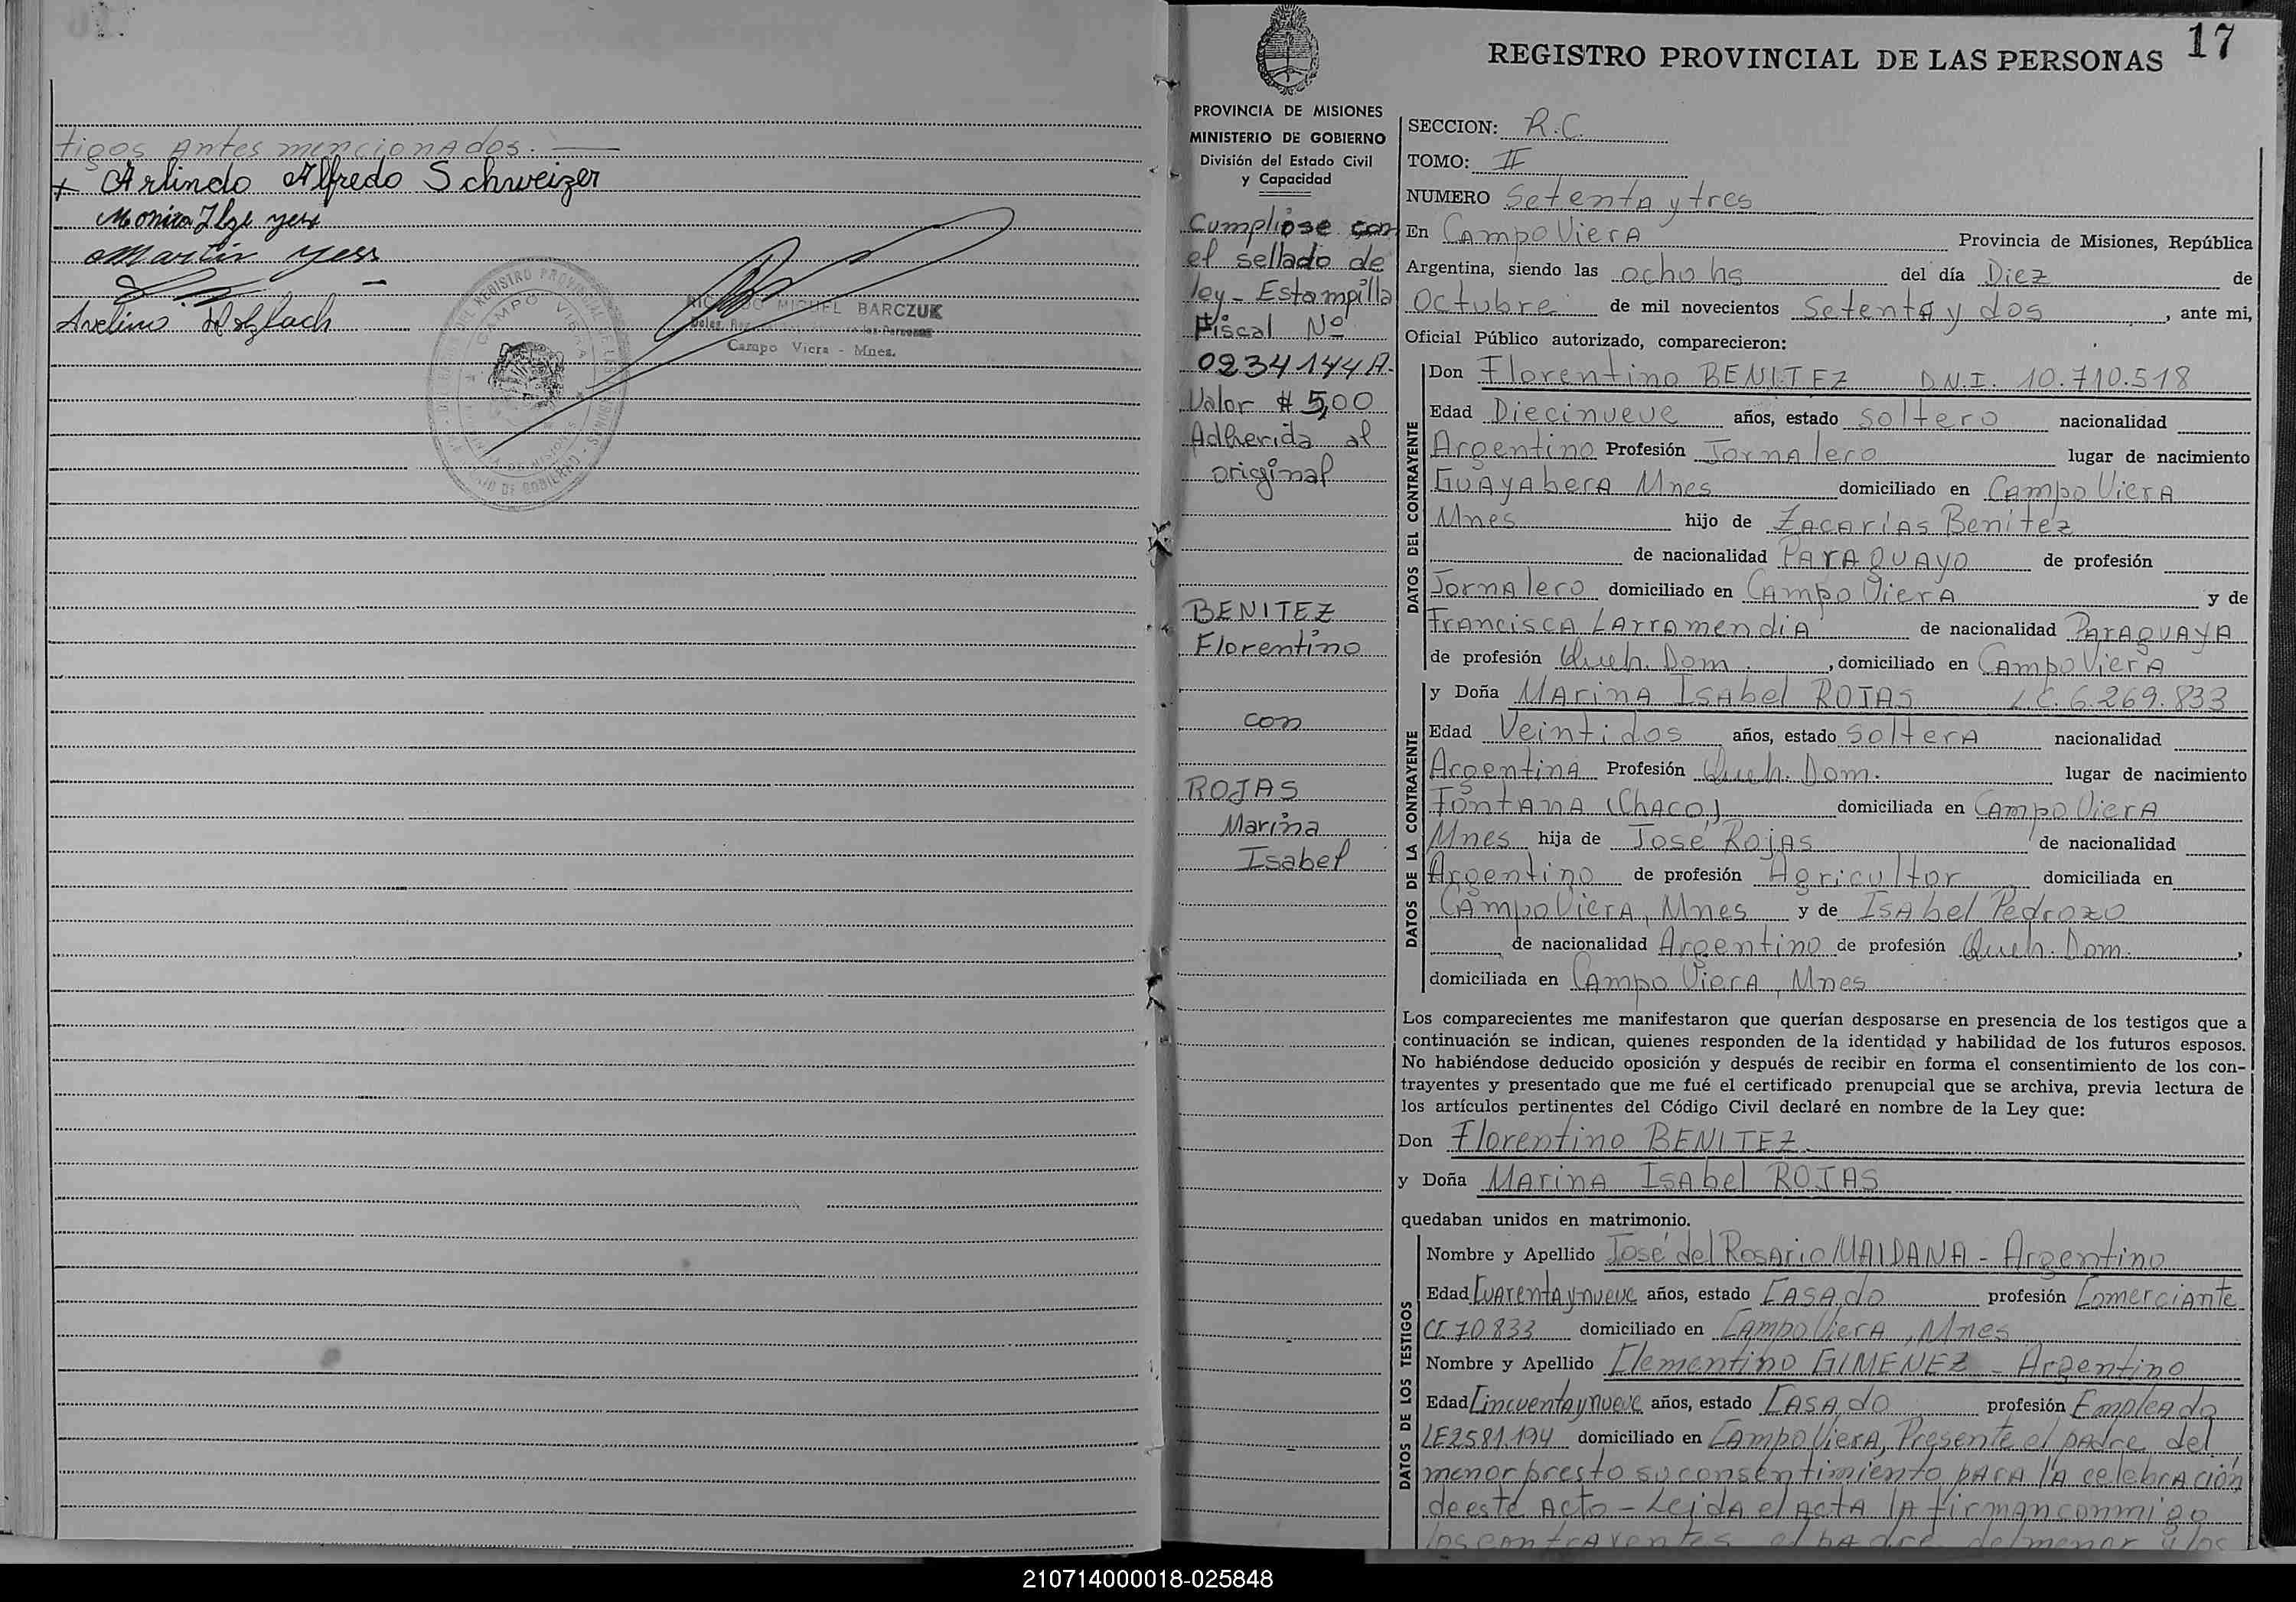 tigos antes mencionados.
x Arlindo Alfredo Schweizer
Monica Ilze yess
Martin yess
Avelino Holzbach
REGISTRO PROVINCIAL DE
CAMPO VIERA
MIGUEL BARCZUK
Campo Viera - Mnes.
DE GOBIERNO
17
REGISTRO PROVINCIAL DE LAS PERSONAS
PROVINCIA DE MISIONES
MINISTERIO DE GOBIERNO
División del Estado Civil
y Capacidad
Cumpliose con
el sellado de
ley - Estampilla
Fiscal Nº
0234144A.
Valor $ 5,00
Adherida al
original
BENITEZ
Florentino
con
ROJAS
Marina
Isabel
SECCION: R.C.
TOMO: II
NUMERO Setenta y tres
En Campo Viera Provincia de Misiones, República
Argentina, siendo las ocho hs del día Diez de
Octubre de mil novecientos Setenta y dos, ante mi,
Oficial Público autorizado, comparecieron:
DATOS DEL CONTRAYENTE
Don Florentino BENITEZ D.N.I. 10.710.518
Edad Diecinueve años, estado soltero nacionalidad
Argentino Profesión Jornalero lugar de nacimiento
Guayabera Mnes domiciliado en Campo Viera
Mnes hijo de Zacarías Benitez
de nacionalidad Paraguayo de profesión
Jornalero domiciliado en Campo Viera y de
Francisca Larramendia de nacionalidad Paraguaya
de profesión Queh. Dom., domiciliado en Campo Viera
DATOS DE LA CONTRAYENTE
y Doña Marina Isabel ROJAS L.C. 6.269.833
Edad Veintidos años, estado soltera nacionalidad
Argentina Profesión Queh. Dom. lugar de nacimiento
Fontana (Chaco) domiciliada en Campo Viera
Mnes hija de José Rojas de nacionalidad
Argentino de profesión Agricultor domiciliada en
Campo Viera, Mnes y de Isabel Pedrozo
de nacionalidad Argentino de profesión Queh. Dom.,
domiciliada en Campo Viera, Mnes
Los comparecientes me manifestaron que querían desposarse en presencia de los testigos que a
continuación se indican, quienes responden de la identidad y habilidad de los futuros esposos.
No habiéndose deducido oposición y después de recibir en forma el consentimiento de los con-
trayentes y presentado que me fué el certificado prenupcial que se archiva, previa lectura de
los artículos pertinentes del Código Civil declaré en nombre de la Ley que:
Don Florentino BENITEZ
y Doña Marina Isabel ROJAS
quedaban unidos en matrimonio.
DATOS DE LOS TESTIGOS
Nombre y Apellido José del Rosario MAIDANA - Argentino
Edad Cuarenta y nueve años, estado Casado profesión Comerciante
CI 70.833 domiciliado en Campo Viera, Mnes
Nombre y Apellido Clementino GIMENEZ - Argentino
Edad Cincuenta y nueve años, estado Casado profesión Empleado
LE 2581.194 domiciliado en Campo Viera, Presente el padre del
menor presto su consentimiento para la celebración
de este Acto - Leida el acta la firman conmigo
los contrayentes el padre del menor y los
210714000018-025848